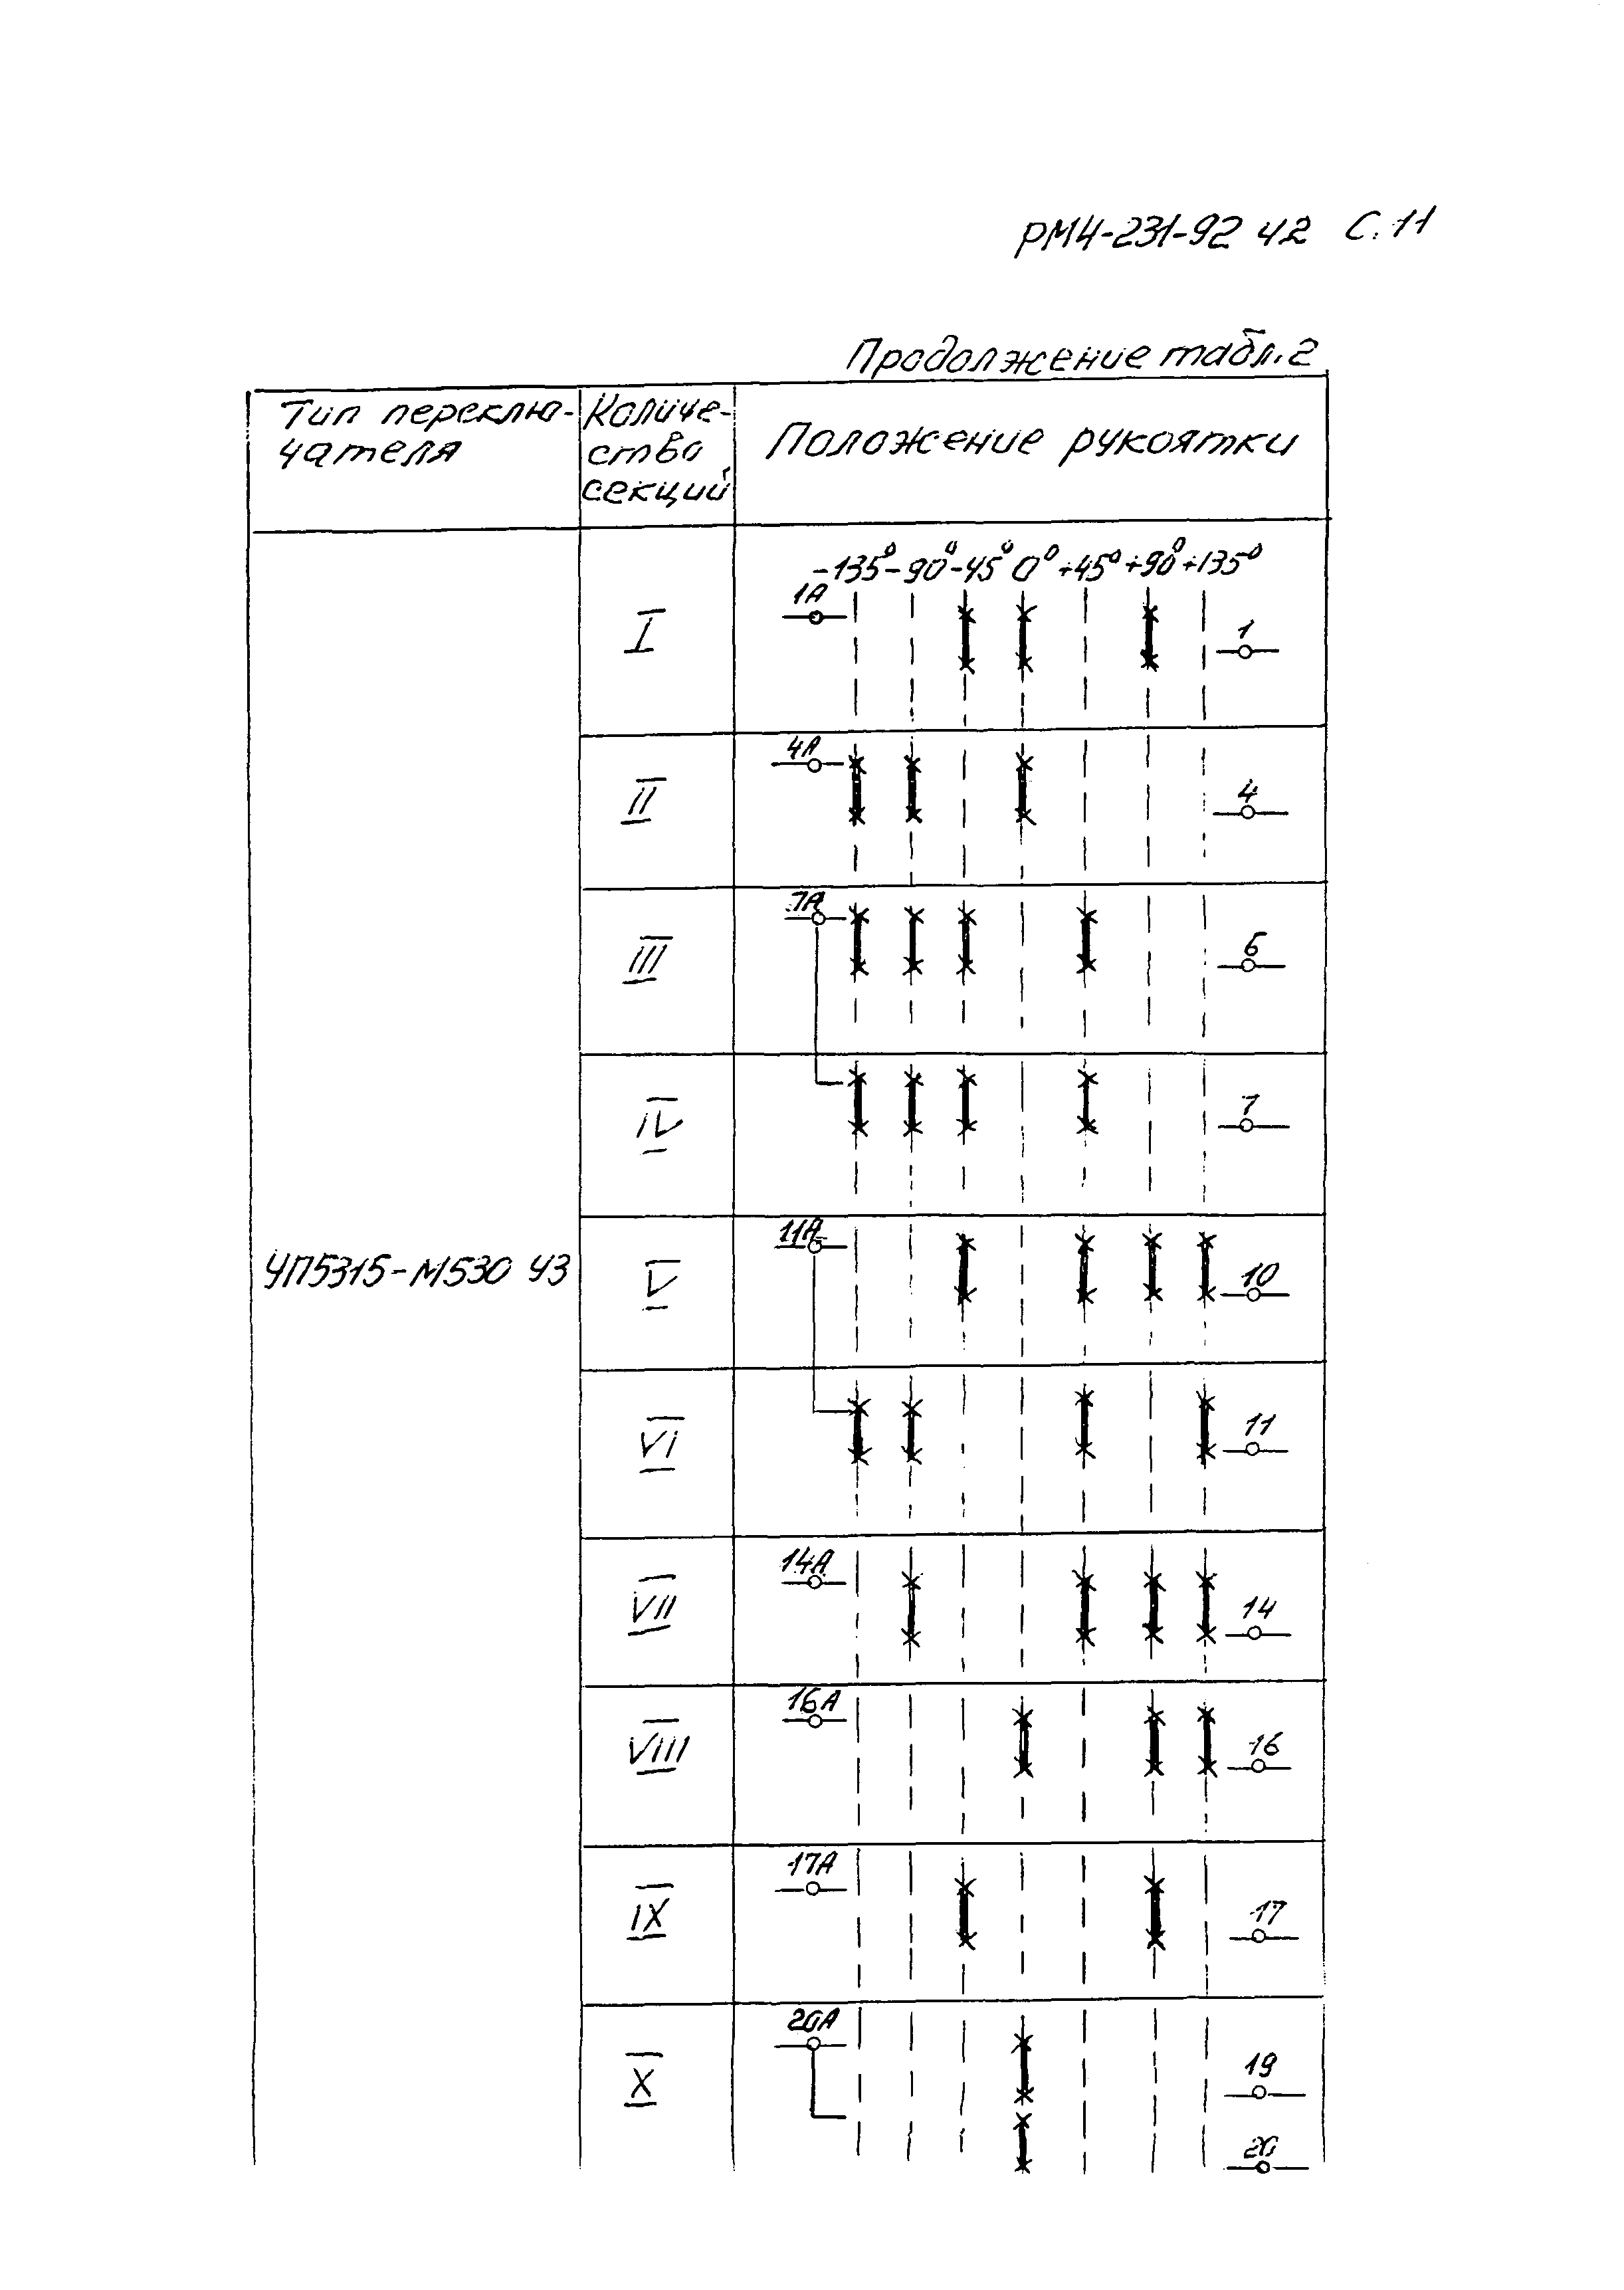 РМ4-231-92 Ч2 С. 11
Продолжение табл. 2
Тип переклю-
чателя
Количе-
ство
секций
Положение рукоятки
-135° -90° -45° 0° +45° +90° +135°
I
1А
1
II
4А
4
III
7А
6
IV
7
УП5315-М530 У3
V
11А
10
VI
11
VII
14А
14
VIII
16А
16
IX
17А
17
X
20А
19
20